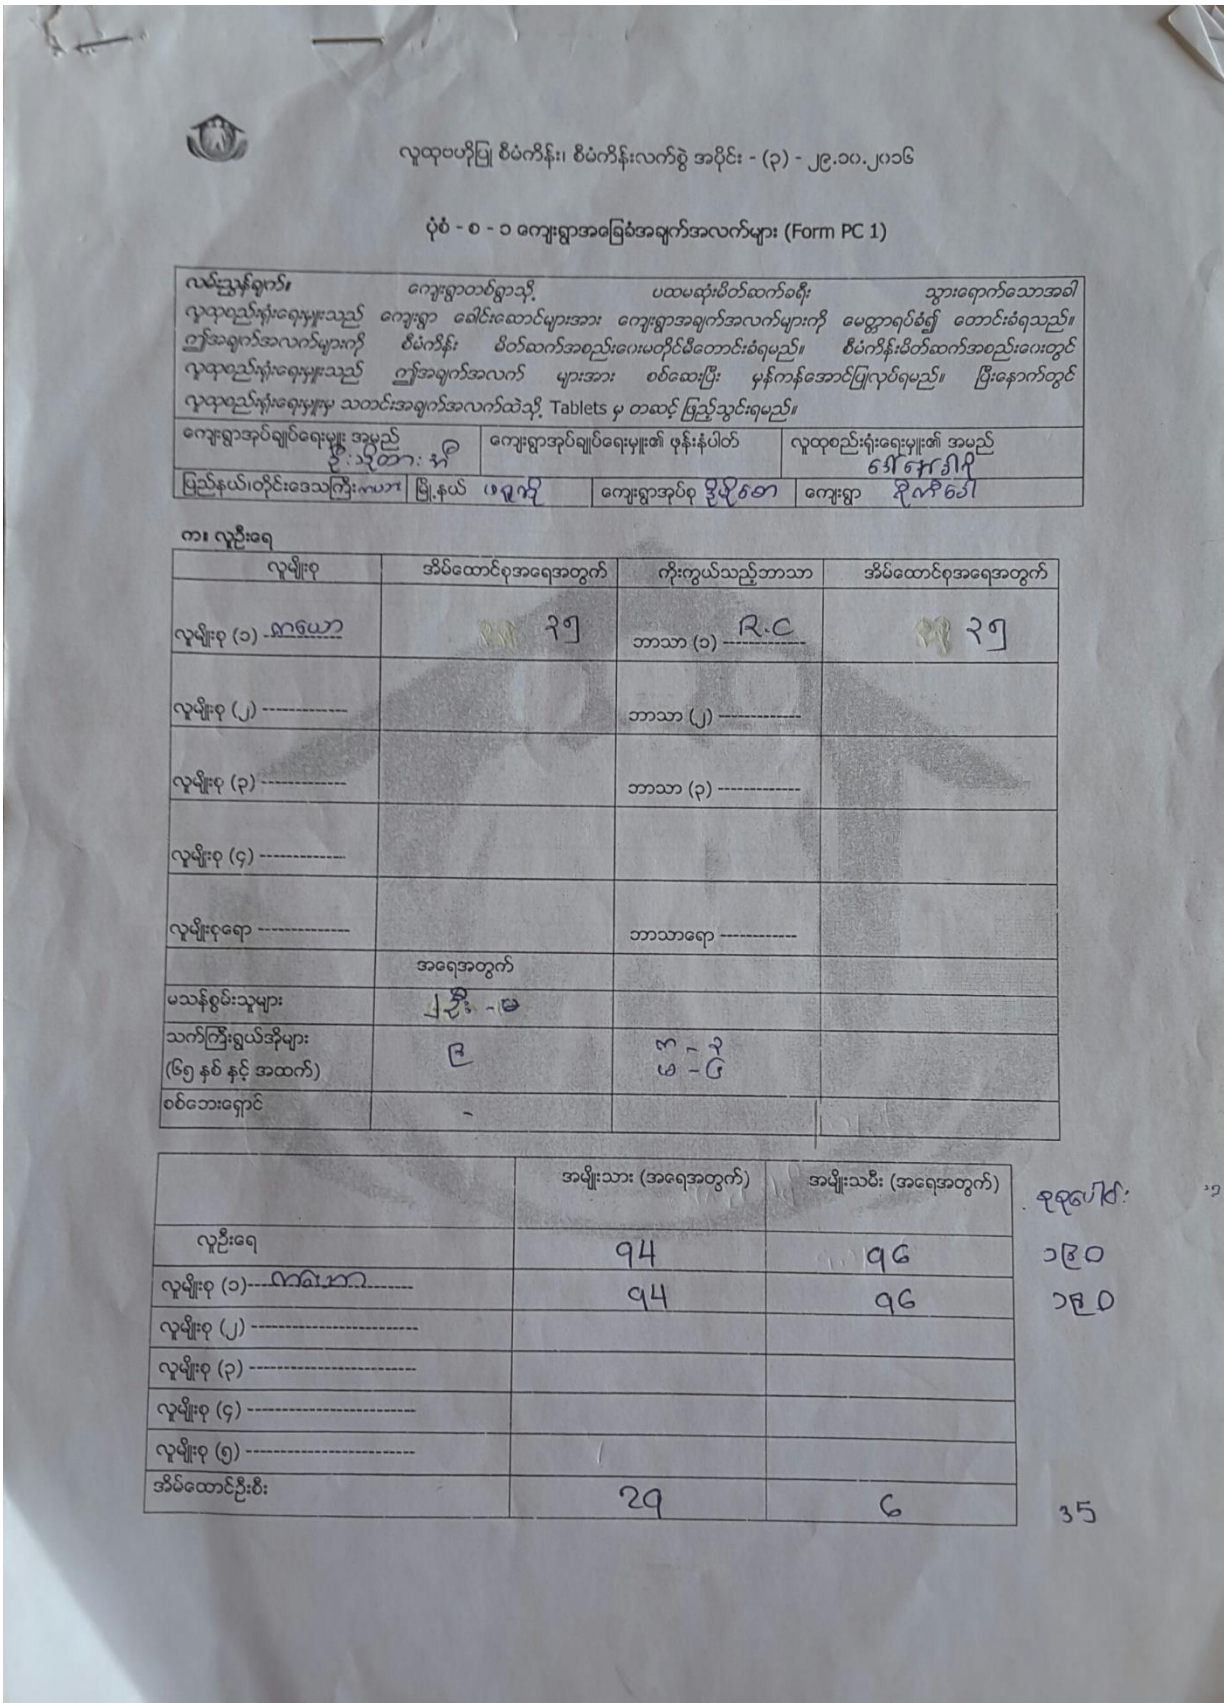 လူထုဗဟိုပြု စီမံကိန်း၊ စီမံကိန်းလက်စွဲ အပိုင်း - (၃) - ၂၉.၁၀.၂၀၁၆
ပုံစံ - စ - ၁ ကျေးရွာအခြေခံအချက်အလက်များ (Form PC 1)
လမ်းညွှန်ချက်။ ကျေးရွာတစ်ရွာသို့ ပထမဆုံးမိတ်ဆက်ခရီး သွားရောက်သောအခါ
လူထုစည်းရုံးရေးမှူးသည် ကျေးရွာ ခေါင်းဆောင်များအား ကျေးရွာအချက်အလက်များကို မေတ္တာရပ်ခံ၍ တောင်းခံရသည်။
ဤအချက်အလက်များကို စီမံကိန်း မိတ်ဆက်အစည်းဝေးမတိုင်မီတောင်းခံရမည်။ စီမံကိန်းမိတ်ဆက်အစည်းဝေးတွင်
လူထုစည်းရုံးရေးမှူးသည် ဤအချက်အလက် များအား စစ်ဆေးပြီး မှန်ကန်အောင်ပြုလုပ်ရမည်။ ပြီးနောက်တွင်
လူထုစည်းရုံးရေးမှူးမှ သတင်းအချက်အလက်ထဲသို့ Tablets မှ တဆင့် ဖြည့်သွင်းရမည်။
ကျေးရွာအုပ်ချုပ်ရေးမှူး အမည် ကျေးရွာအုပ်ချုပ်ရေးမှူး၏ ဖုန်းနံပါတ် လူထုစည်းရုံးရေးမှူး၏ အမည်
ပြည်နယ်၊တိုင်းဒေသကြီး ကယား မြို့နယ် ဖရူဆို ကျေးရွာအုပ်စု ကျေးရွာ
က။ လူဦးရေ
လူမျိုးစု အိမ်ထောင်စုအရေအတွက် ကိုးကွယ်သည့်ဘာသာ အိမ်ထောင်စုအရေအတွက်
လူမျိုးစု (၁) ကယော ၃၅ ဘာသာ (၁) R.C ၃၅
လူမျိုးစု (၂) ------------- ဘာသာ (၂) -------------
လူမျိုးစု (၃) ------------- ဘာသာ (၃) -------------
လူမျိုးစု (၄) -------------
လူမျိုးစုရော -------------- ဘာသာရော ------------
အရေအတွက်
မသန်စွမ်းသူများ ၂ ဦး - မ
သက်ကြီးရွယ်အိုများ ၉ က - ၃
(၆၅ နှစ် နှင့် အထက်) မ - ၆
စစ်ဘေးရှောင် -
အမျိုးသား (အရေအတွက်) အမျိုးသမီး (အရေအတွက်) စုစုပေါင်း
လူဦးရေ 94 96 ၁၉၀
လူမျိုးစု (၁) ကယော 94 96 ၁၉၀
လူမျိုးစု (၂) --------------------------
လူမျိုးစု (၃) --------------------------
လူမျိုးစု (၄) --------------------------
လူမျိုးစု (၅) --------------------------
အိမ်ထောင်ဦးစီး 29 6 35